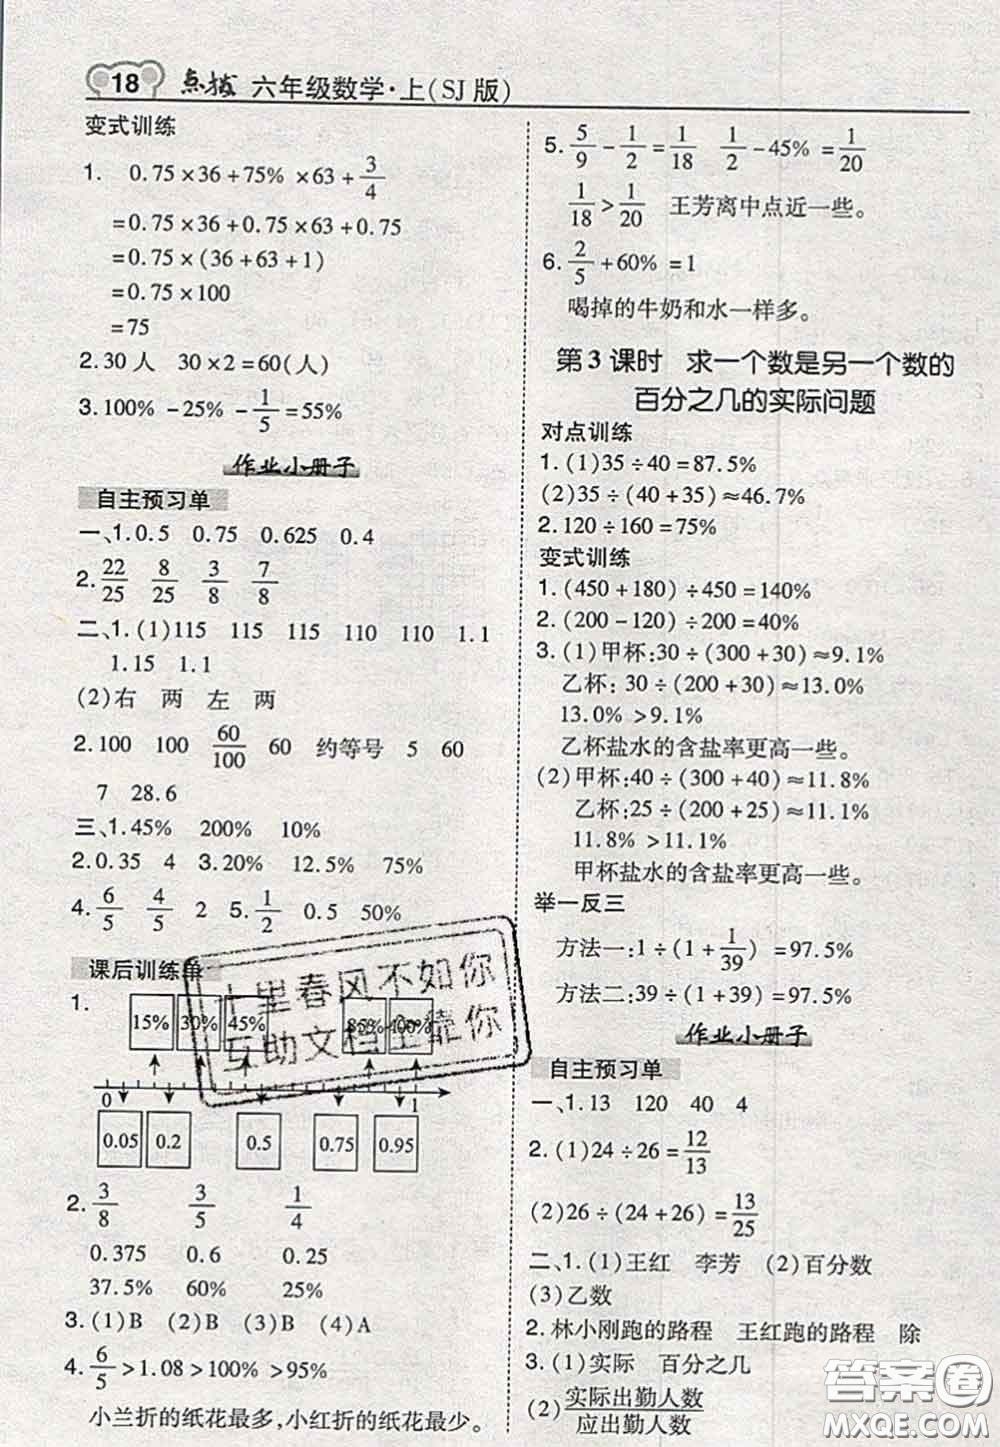 18 点拨 六年级数学·上(SJ版)
变式训练
1. 0.75×36+75%×63+3/4
=0.75×36+0.75×63+0.75
=0.75×(36+63+1)
=0.75×100
=75
2.30人 30×2=60(人)
3.100%-25%-1/5=55%
作业小册子
自主预习单
一、1.0.5 0.75 0.625 0.4
2.22/25 8/25 3/8 7/8
二、1.(1)115 115 115 110 110 1.1
1.15 1.1
(2)右 两 左 两
2.100 100 60/100 60 约等号 5 60
7 28.6
三、1.45% 200% 10%
2.0.35 4 3.20% 12.5% 75%
4.6/5 4/5 2 5.1/2 0.5 50%
课后训练单
1.
15% 30% 45% 85% 100%
0 1
0.05 0.2 0.5 0.75 0.95
2.3/8 3/5 1/4
0.375 0.6 0.25
37.5% 60% 25%
3.(1)B (2)B (3)B (4)A
4.6/5>1.08>100%>95%
小兰折的纸花最多,小红折的纸花最少。
5.5/9-1/2=1/18 1/2-45%=1/20
1/18>1/20 王芳离中点近一些。
6.2/5+60%=1
喝掉的牛奶和水一样多。
第3课时 求一个数是另一个数的
百分之几的实际问题
对点训练
1.(1)35÷40=87.5%
(2)35÷(40+35)≈46.7%
2.120÷160=75%
变式训练
1.(450+180)÷450=140%
2.(200-120)÷200=40%
3.(1)甲杯:30÷(300+30)≈9.1%
乙杯:30÷(200+30)≈13.0%
13.0%>9.1%
乙杯盐水的含盐率更高一些。
(2)甲杯:40÷(300+40)≈11.8%
乙杯:25÷(200+25)≈11.1%
11.8%>11.1%
甲杯盐水的含盐率更高一些。
举一反三
方法一:1÷(1+1/39)=97.5%
方法二:39÷(1+39)=97.5%
作业小册子
自主预习单
一、1.13 120 40 4
2.(1)24÷26=12/13
(2)26÷(24+26)=13/25
二、1.(1)王红 李芳 (2)百分数
(3)乙数
2.林小刚跑的路程 王红跑的路程 除
3.(1)实际 百分之几
(2)实际出勤人数/应出勤人数
十里春风不如你
互助文档上能你
答案圈
MXQE.COM